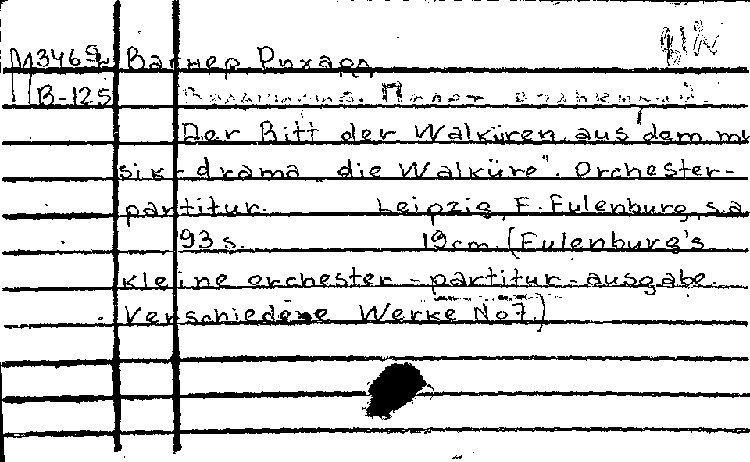 М3469 Вагнер, Рихард
В-125
Der Ritt der Walküren aus dem mu
sik-drama „die Walküre". Orchester-
partitur. Leipzig, E. Eulenburg, s.a.
93 s. 19cm. (Eulenburg's
kleine orchester-partitur-ausgabe.
Verschiedene Werke No7.)